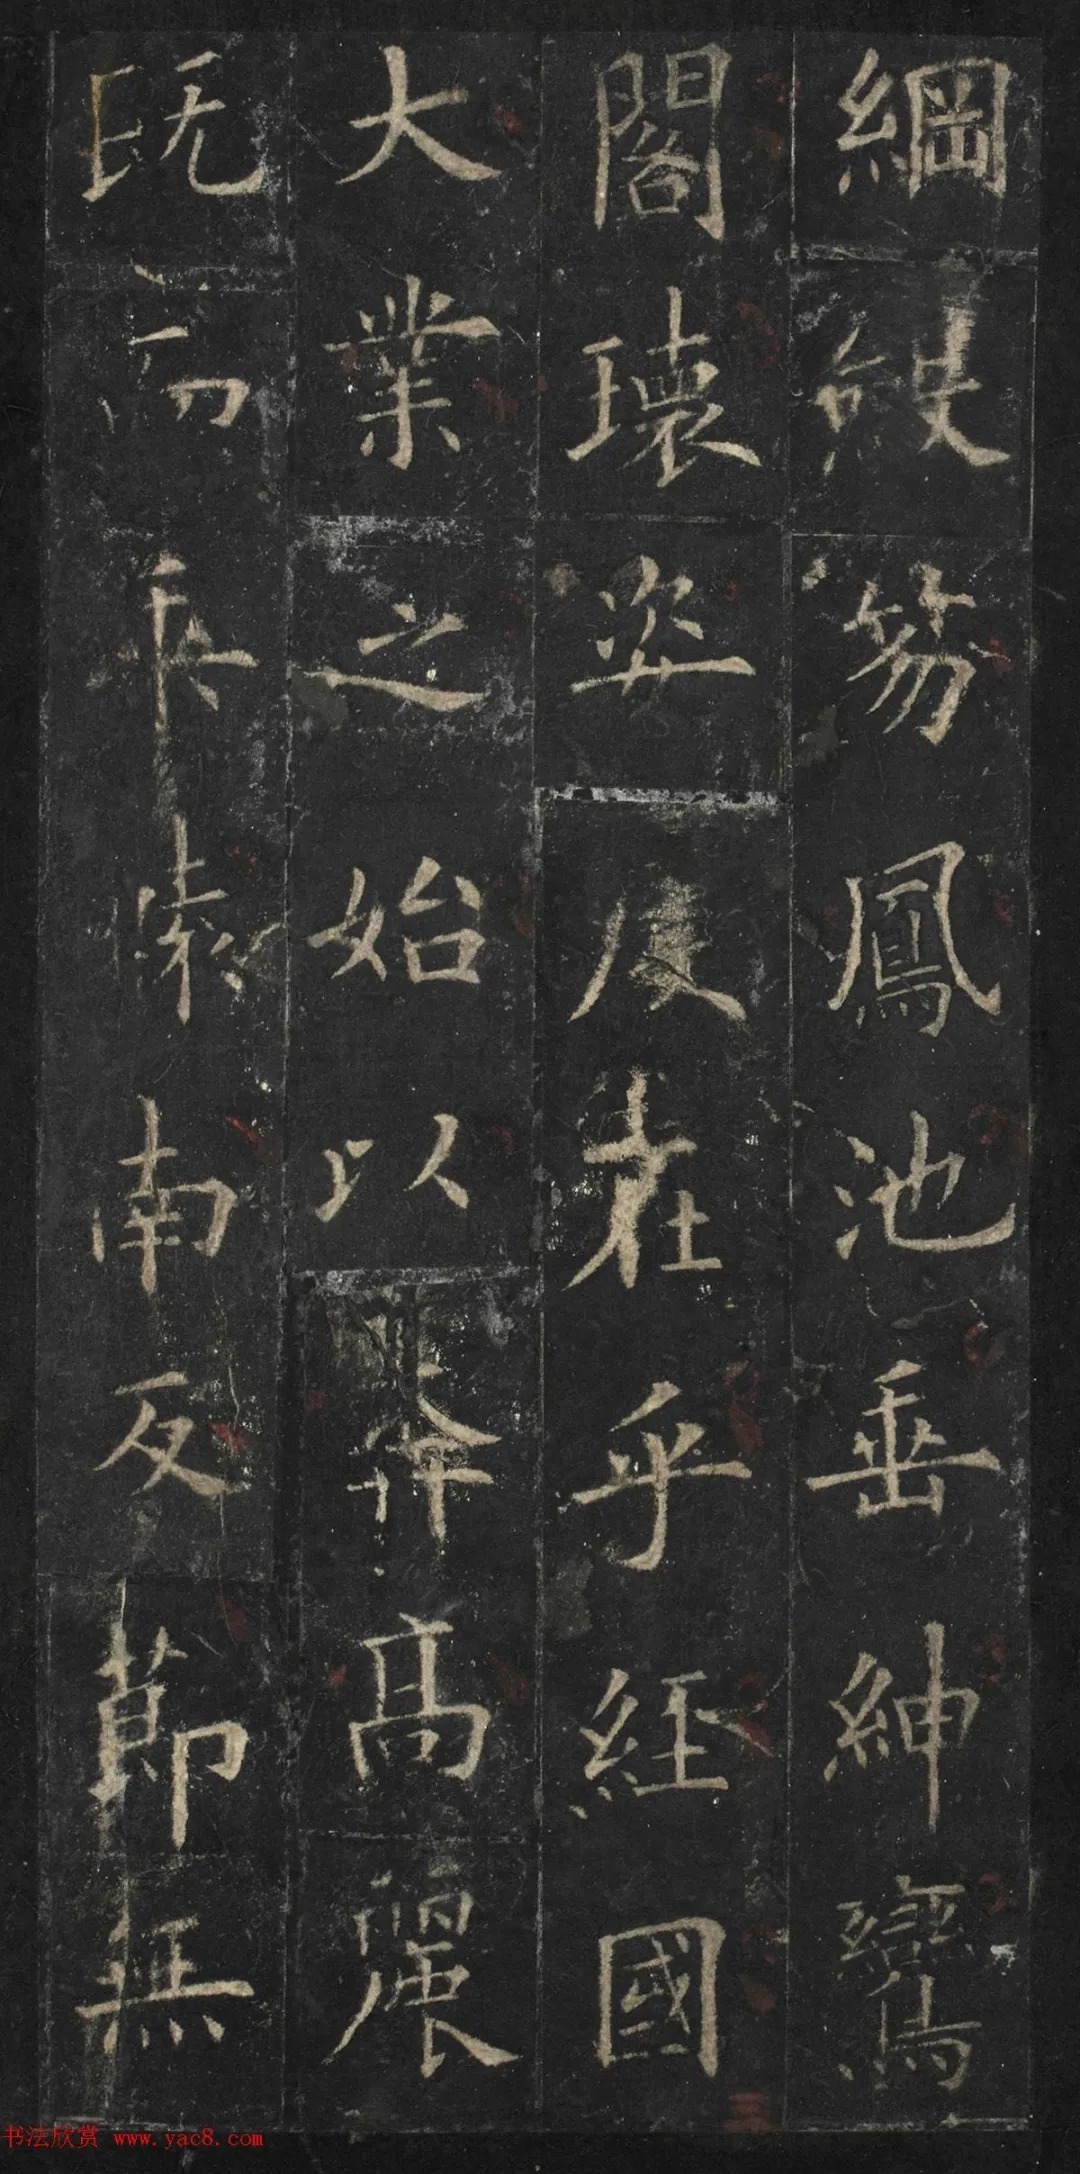 綱笏鳳池垂紳鸞
閣瓌姿在乎經國
大業之始以高麗
既南反節無
书法欣赏 www.yac8.com